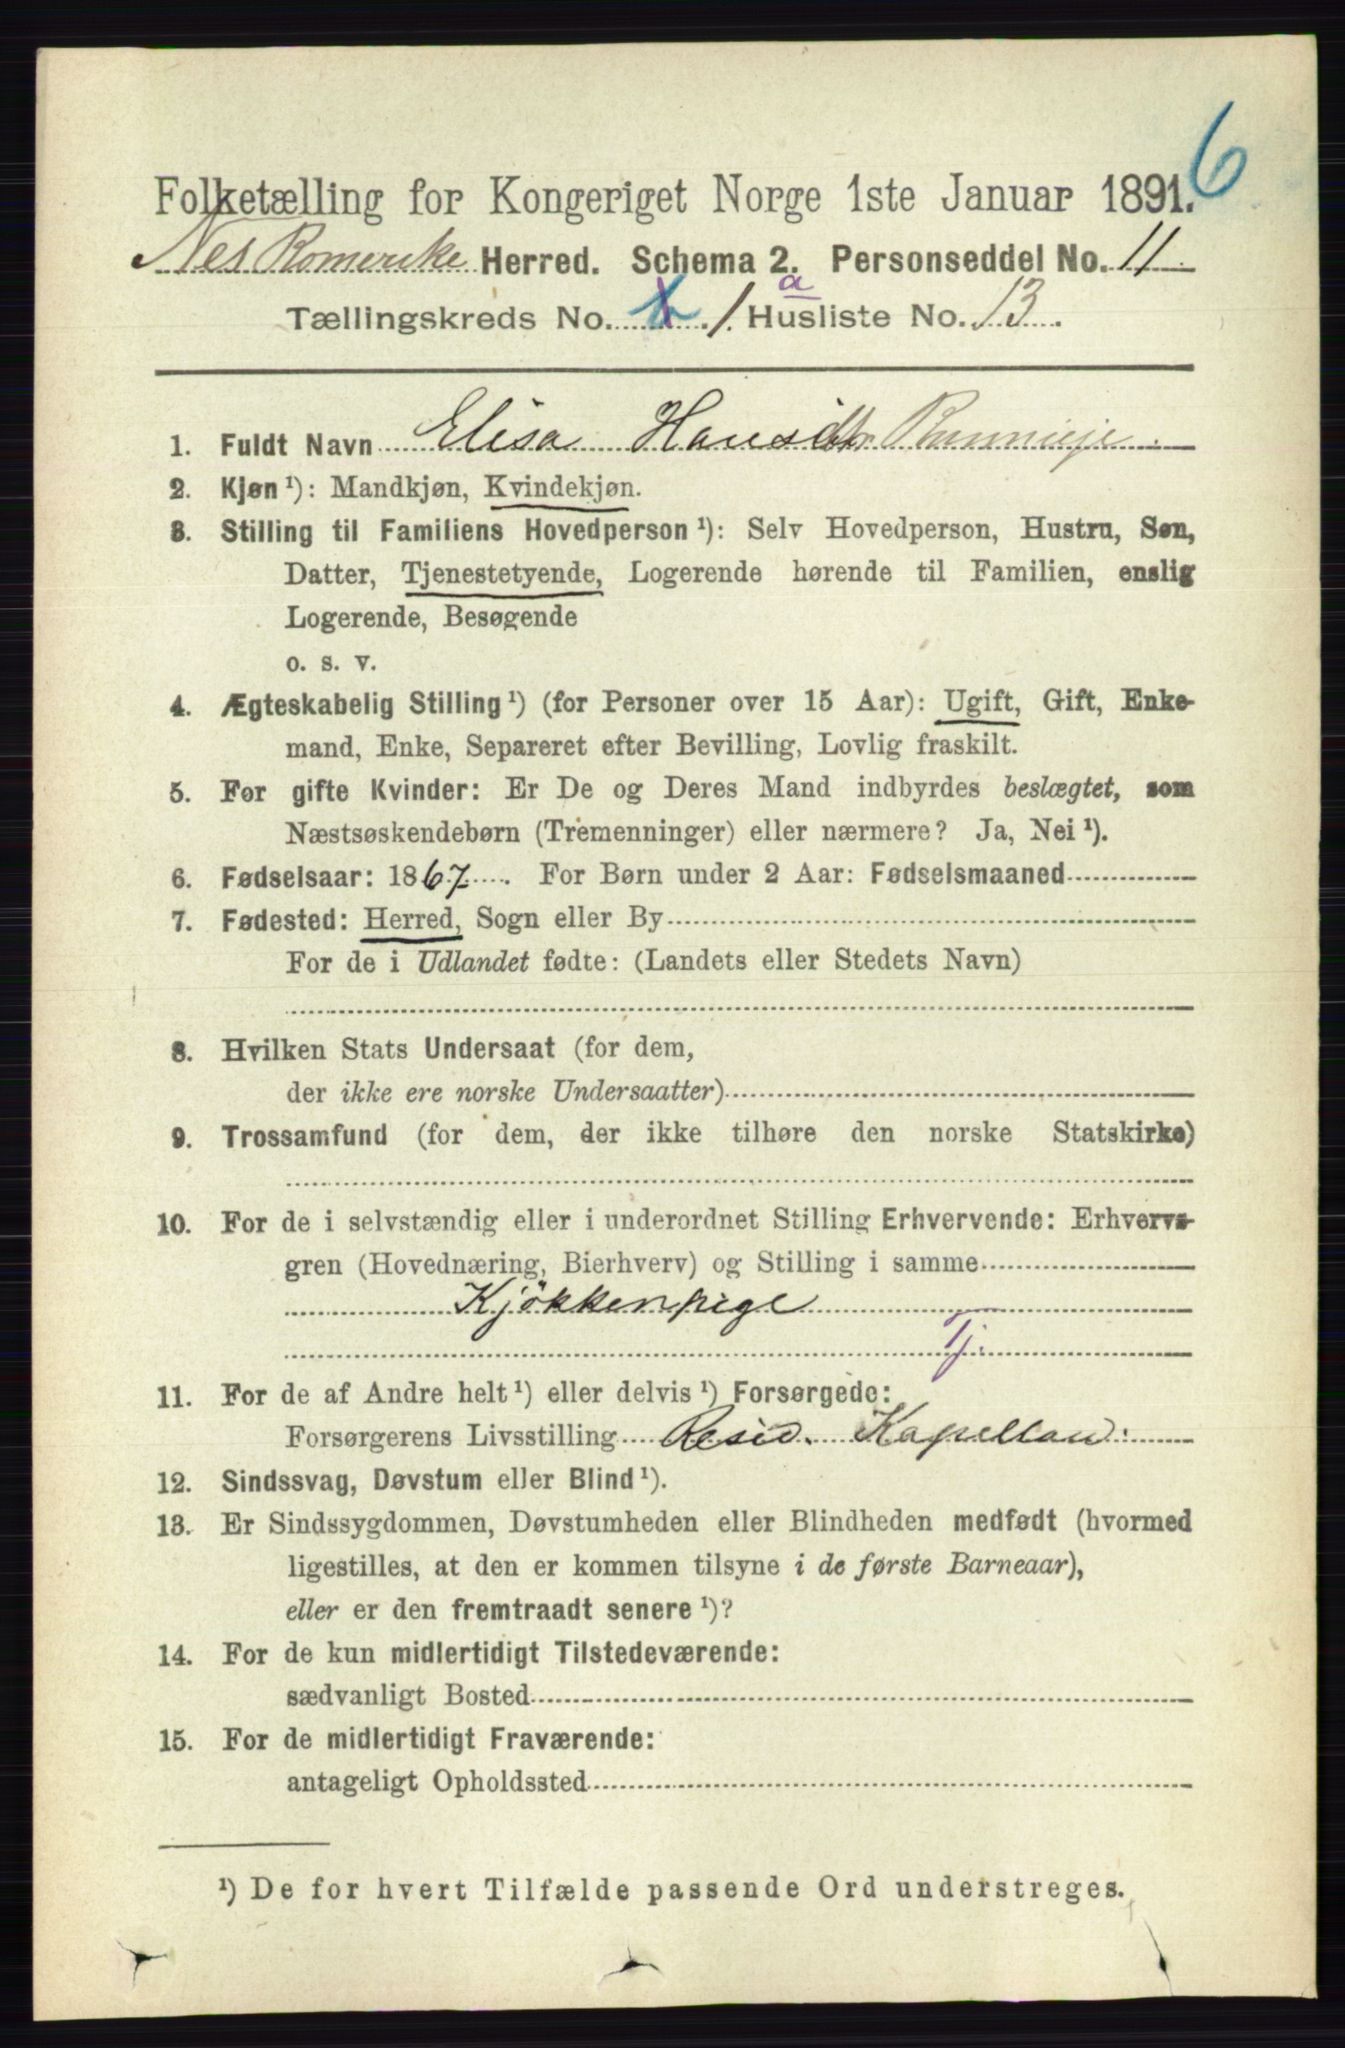 6
Folketælling for Kongeriget Norge 1ste Januar 1891.
Nes Romerike Herred. Schema 2. Personseddel No. 11
Tællingskreds No. 1. a Husliste No. 13.
1. Fuldt Navn Elisa Hansdtr
2. Kjøn ¹): Mandkjøn, Kvindekjøn.
3. Stilling til Familiens Hovedperson ¹): Selv Hovedperson, Hustru, Søn,
Datter, Tjenestetyende, Logerende hørende til Familien, enslig
Logerende, Besøgende
o. s. v.
4. Ægteskabelig Stilling ¹) (for Personer over 15 Aar): Ugift, Gift, Enke-
mand, Enke, Separeret efter Bevilling, Lovlig fraskilt.
5. For gifte Kvinder: Er De og Deres Mand indbyrdes beslægtet, som
Næstsøskendebørn (Tremenninger) eller nærmere? Ja, Nei ¹).
6. Fødselsaar: 1867. For Børn under 2 Aar: Fødselsmaaned
7. Fødested: Herred, Sogn eller By
For de i Udlandet fødte: (Landets eller Stedets Navn)
8. Hvilken Stats Undersaat (for dem,
der ikke ere norske Undersaatter)
9. Trossamfund (for dem, der ikke tilhøre den norske Statskirke)
10. For de i selvstændig eller i underordnet Stilling Erhvervende: Erhvervs-
gren (Hovednæring, Bierhverv) og Stilling i samme
Kjökkenpige
Tj.
11. For de af Andre helt ¹) eller delvis ¹) Forsørgede:
Forsørgerens Livsstilling Resid. Kapellan.
12. Sindssvag, Døvstum eller Blind ¹).
13. Er Sindssygdommen, Døvstumheden eller Blindheden medfødt (hvormed
ligestilles, at den er kommen tilsyne i de første Barneaar),
eller er den fremtraadt senere ¹)?
14. For de kun midlertidigt Tilstedeværende:
sædvanligt Bosted
15. For de midlertidigt Fraværende:
antageligt Opholdssted
¹) De for hvert Tilfælde passende Ord understreges.